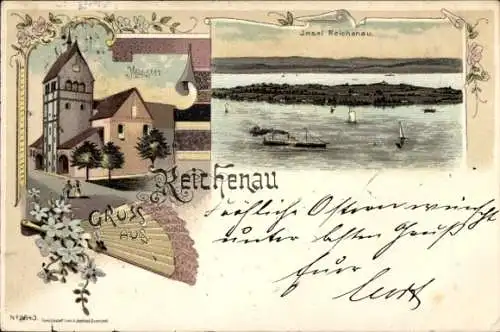 Münster
Insel Reichenau.
Reichenau
GRUSS
AUS
Fröhliche Ostern wünscht
unter besten Gruß
Kurt
No 2643.